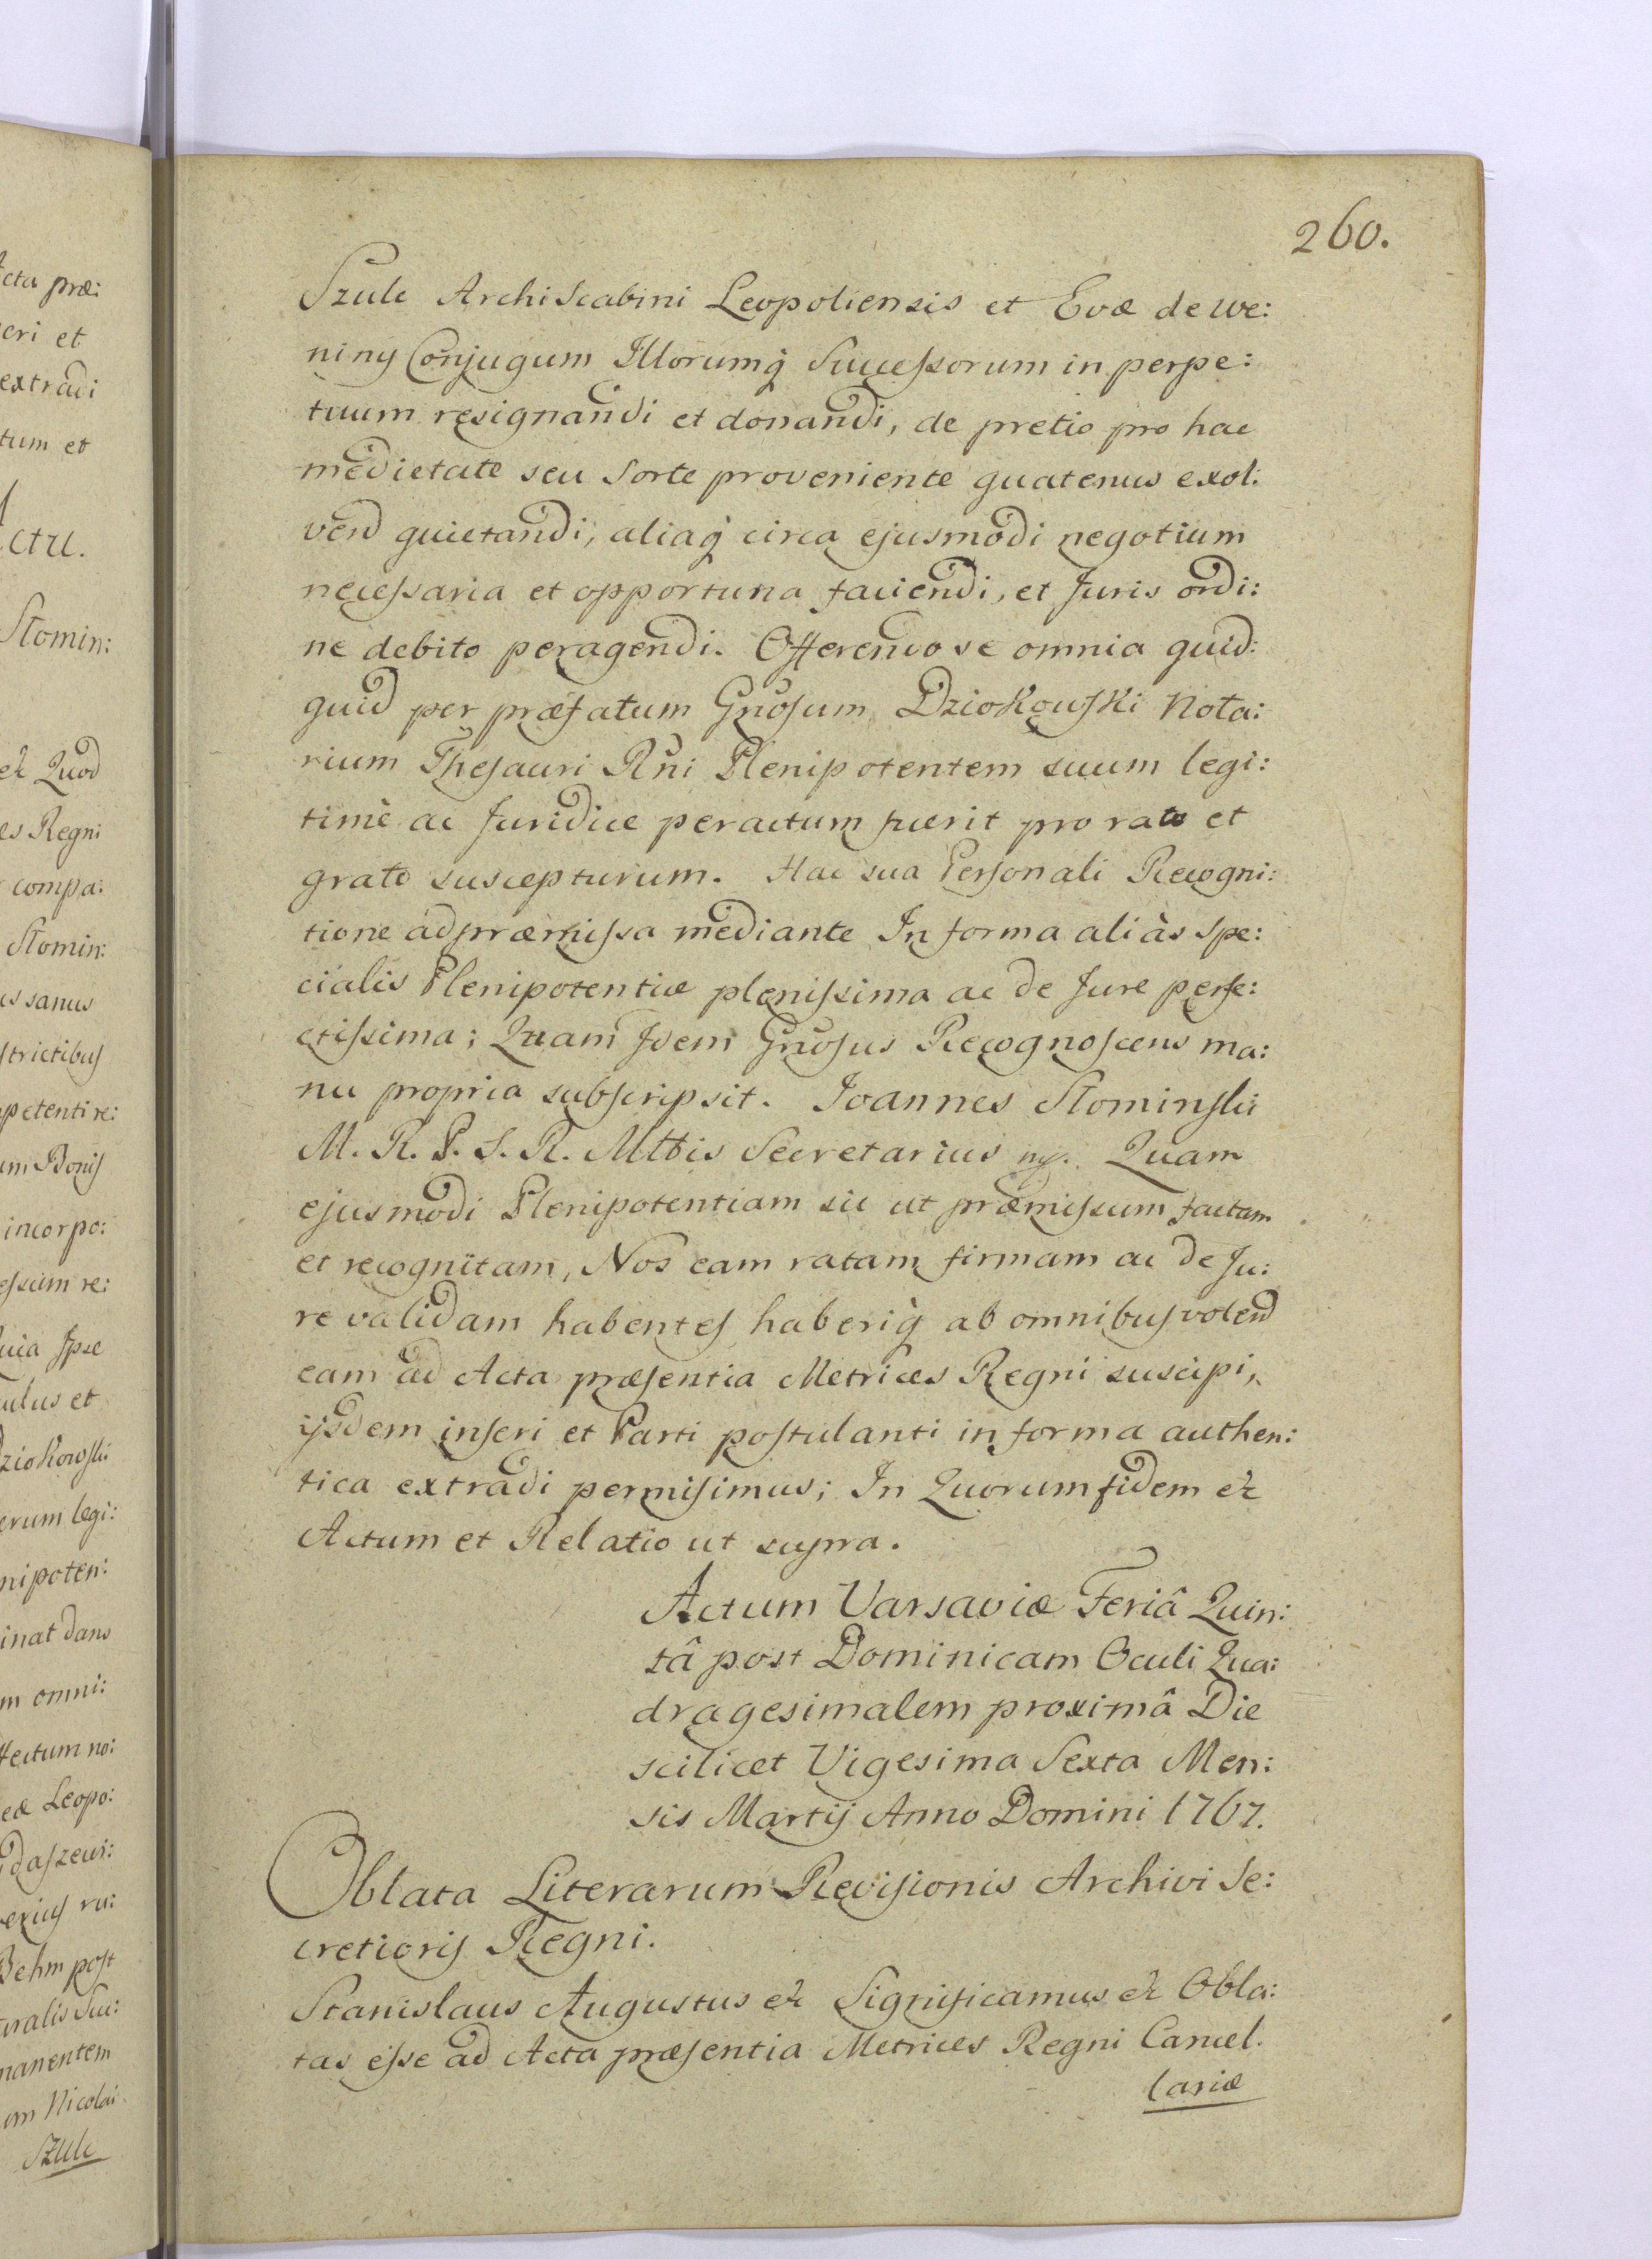 260.
Szulc Archiscabini Leopoliensis et Evæ de We:
niny Conjugum Illorumq̀ Successorum in perpe:
tuum resignandi et donandi, de pretio pro hac
medietate seu Sorte proveniente quatenus exol:
vend quietandi, aliaq̀ circa ejusmodi negotium
necessaria et opportuna faciendi, et Juris ordi:
ne debito peragendi. Offerendo se omnia quid:
quid per præfatum Gnosum Dziokowski Nota:
rium Thesauri Rni Plenipotentem suum legi:
time ac Juridice peractum fuerit pro rato et
grato suscepturum. Hac sua Personali Recogni:
tione ad præmissa mediante In forma aliàs Spe:
cialis Plenipotentiæ plenissima ac de Jure perfe:
ctissima; Quam Idem Gnosus Recognoscens ma:
nu propria subscripsit. Joannes Słominski
M. R. P. S. R. Mttis Secretarius mp. Quam
ejusmodi Plenipotentiam sic ut præmissum factam
et recognitam, Nos eam ratam firmam ac de Ju:
re validam habentes haberiq̀ ab omnibus volend
eam ad Acta præsentia Metrices Regni suscipi,
ijsdem inseri et Parti postulanti in forma authen:
tica extradi permisimus; In Quorum fidem &
Actum et Relatio ut supra.
Actum Varsaviæ Feriâ Quin:
tâ post Dominicam Oculi Qua:
dragesimalem proximâ Die
scilicet Vigesima Sexta Men:
sis Martij Anno Domini 1767.
Oblata Literarum Revisionis Archivi Se:
cretioris Regni.
Stanislaus Augustus & Significamus & Obla:
tas esse ad Acta præsentia Metrices Regni Cancel.
lariæ
cta præ:
eri et
extradi
tum et
ctu.
Słomin:
& Quod
es Regni
compa:
Słomin:
us sanus
strictibus
petenti re:
um Bonis
incorpo:
essum re:
uia Ipse
ulus et
ziokowski
erum legi:
nipoten:
inat dans
m omni:
ffectum no:
eæ Leopo:
daszewi:
Behm post
uralis Suc:
manentem
um Nicolai
Szulc